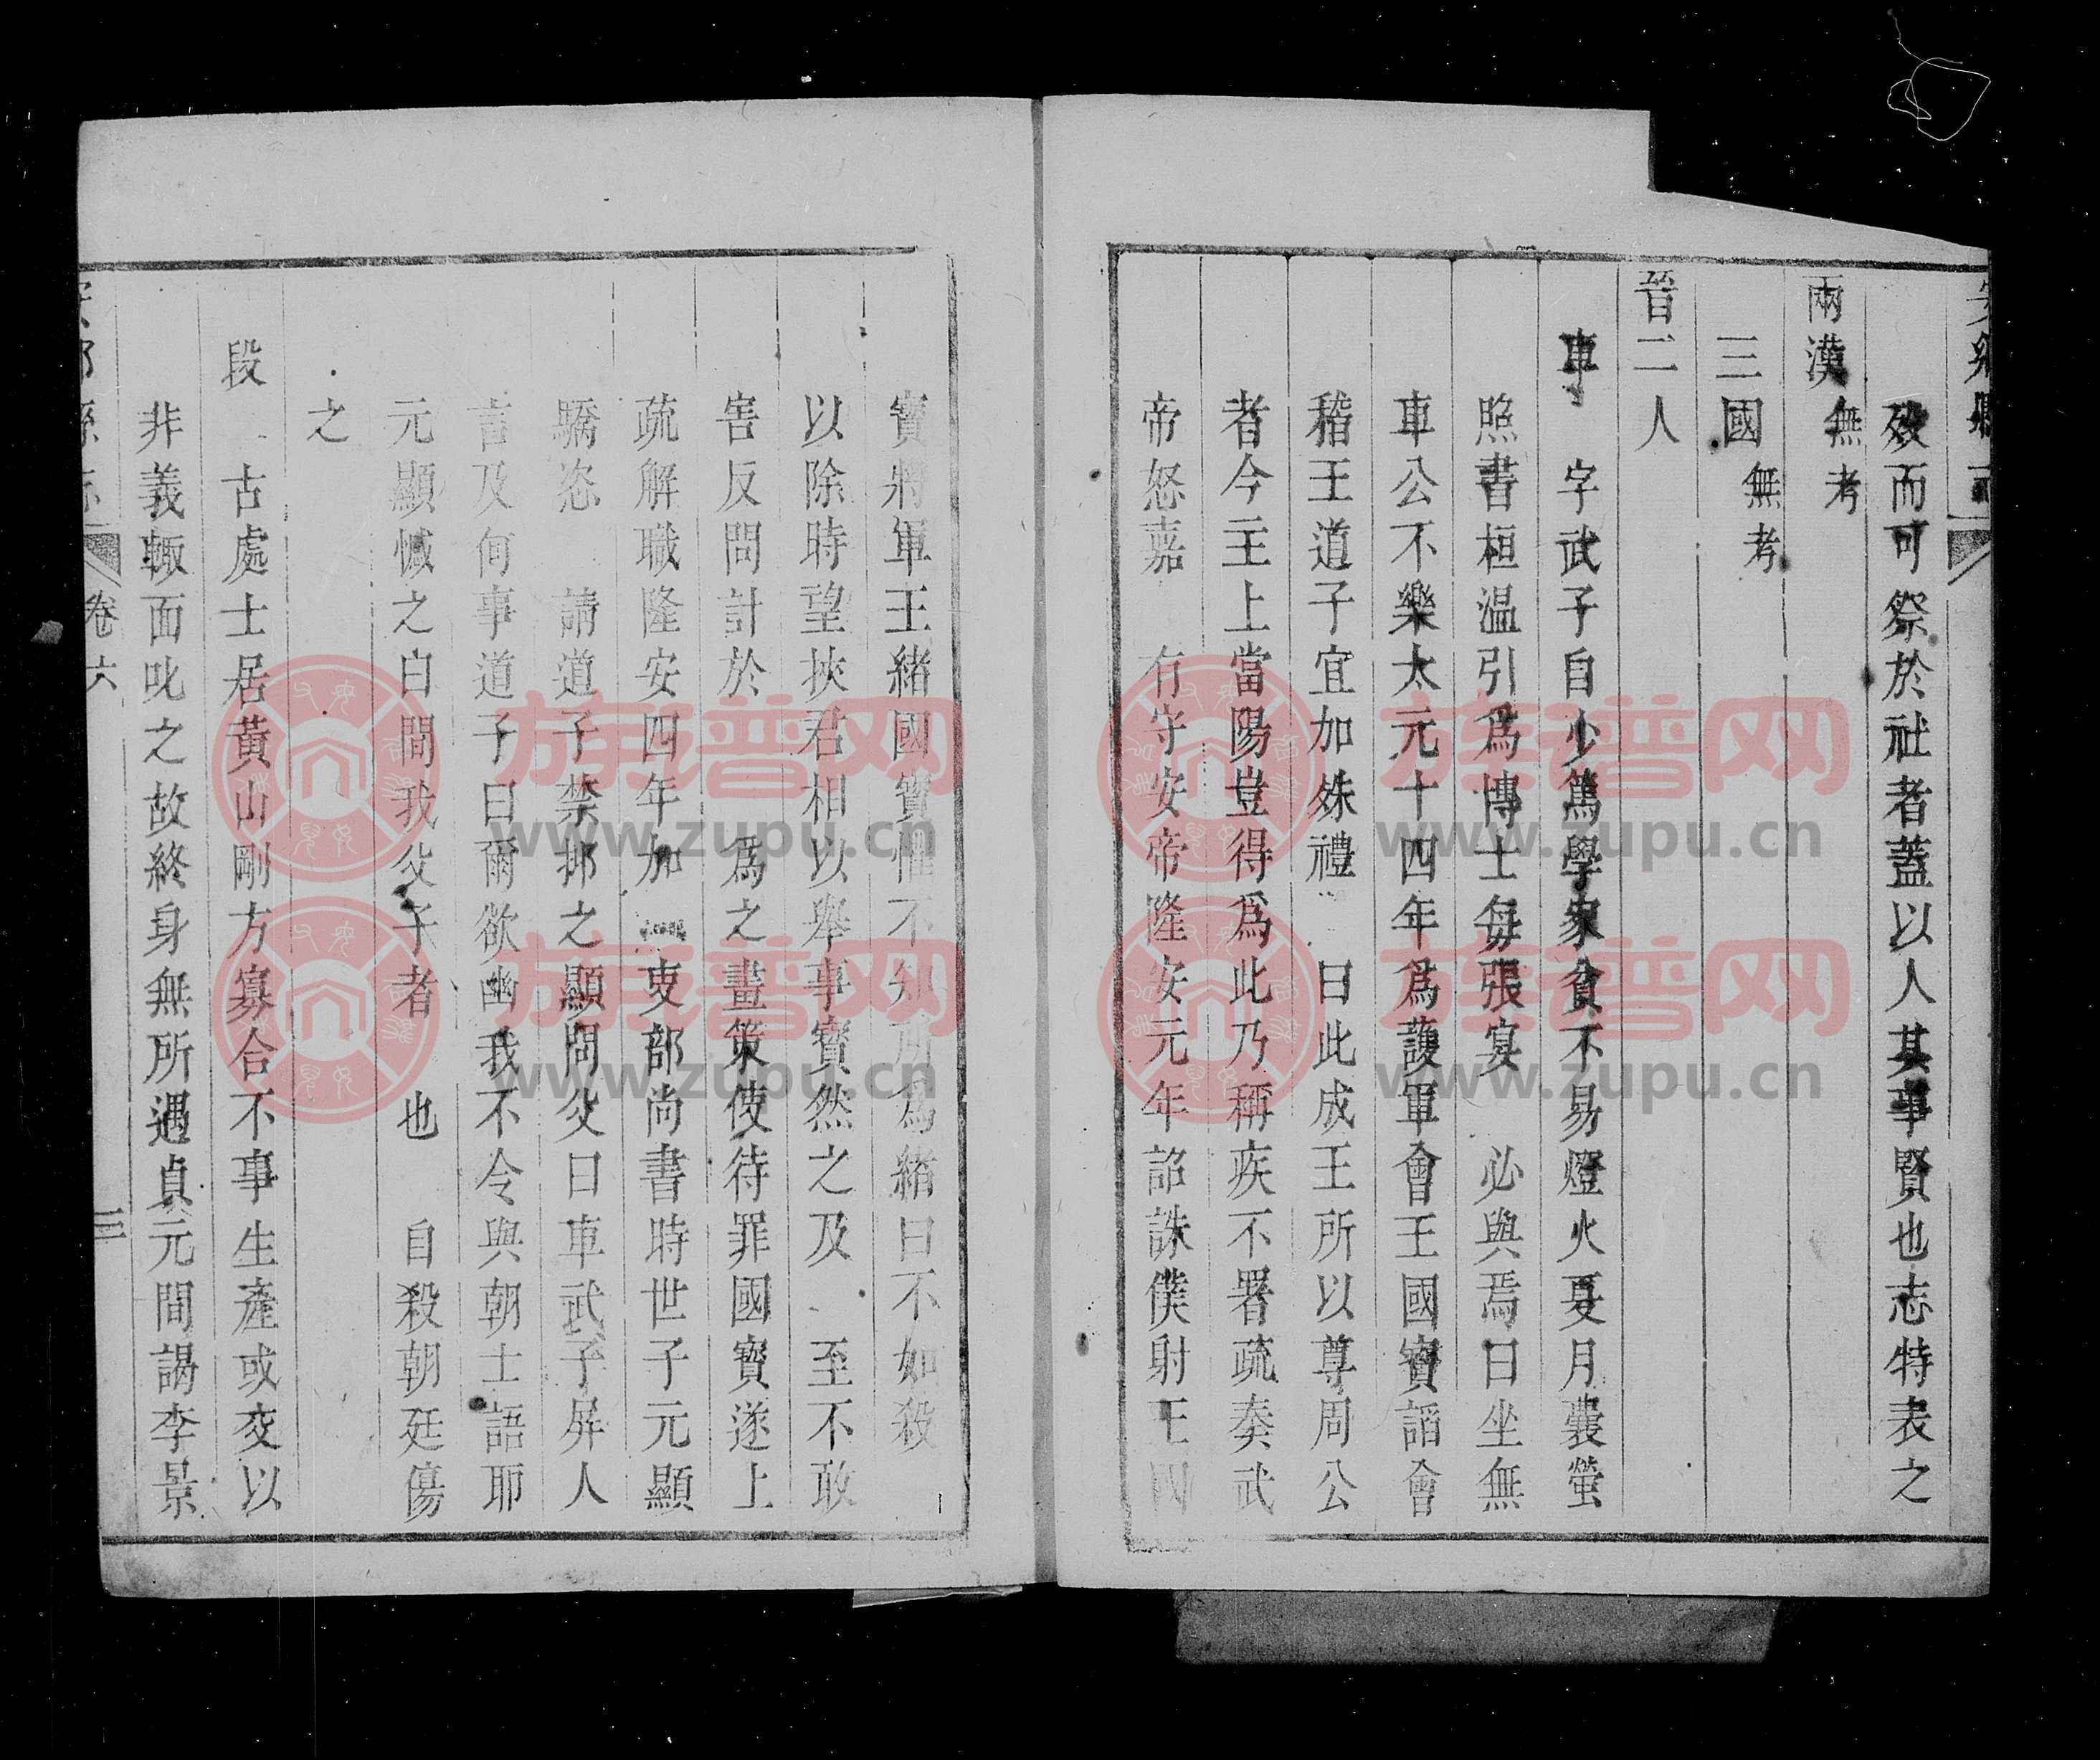 歿而可祭於社者蓋以人其事賢也志特表之
兩漢無考
三國無考
晉二人
車 字武子自少篤學家貧不易燈火夏月囊螢
照書桓温引爲博士每張宴 必與焉曰坐無
車公不樂太元十四年爲護軍會王國寶謟會
稽王道子宜加殊禮 曰此成王所以尊周公
者今主上當陽豈得爲此乃稱疾不署疏奏武
帝怒嘉 有守安帝隆安元年詔誅僕射王國
寶將軍王緒國寶惶不知所爲緒曰不如殺
以除時望挾君相以舉事寶然之及 至不敢
害反問計於 爲之畫策使待罪國寶遂上
疏解職隆安四年加 吏部尚書時世子元顯
驕恣 請道子禁抑之顯問父曰車武子屏人
言及何事道子曰爾欲幽我不令與朝士語耶
元顯憾之白間我父子者 也 自殺朝廷傷
之
段 古處士居黃山剛方寡合不事生產或交以
非義輒面叱之故終身無所遇貞元間謁李景
卷六
三
族譜网
www.zupu.cn
族譜网
www.zupu.cn
族譜网
www.zupu.cn
族譜网
www.zupu.cn